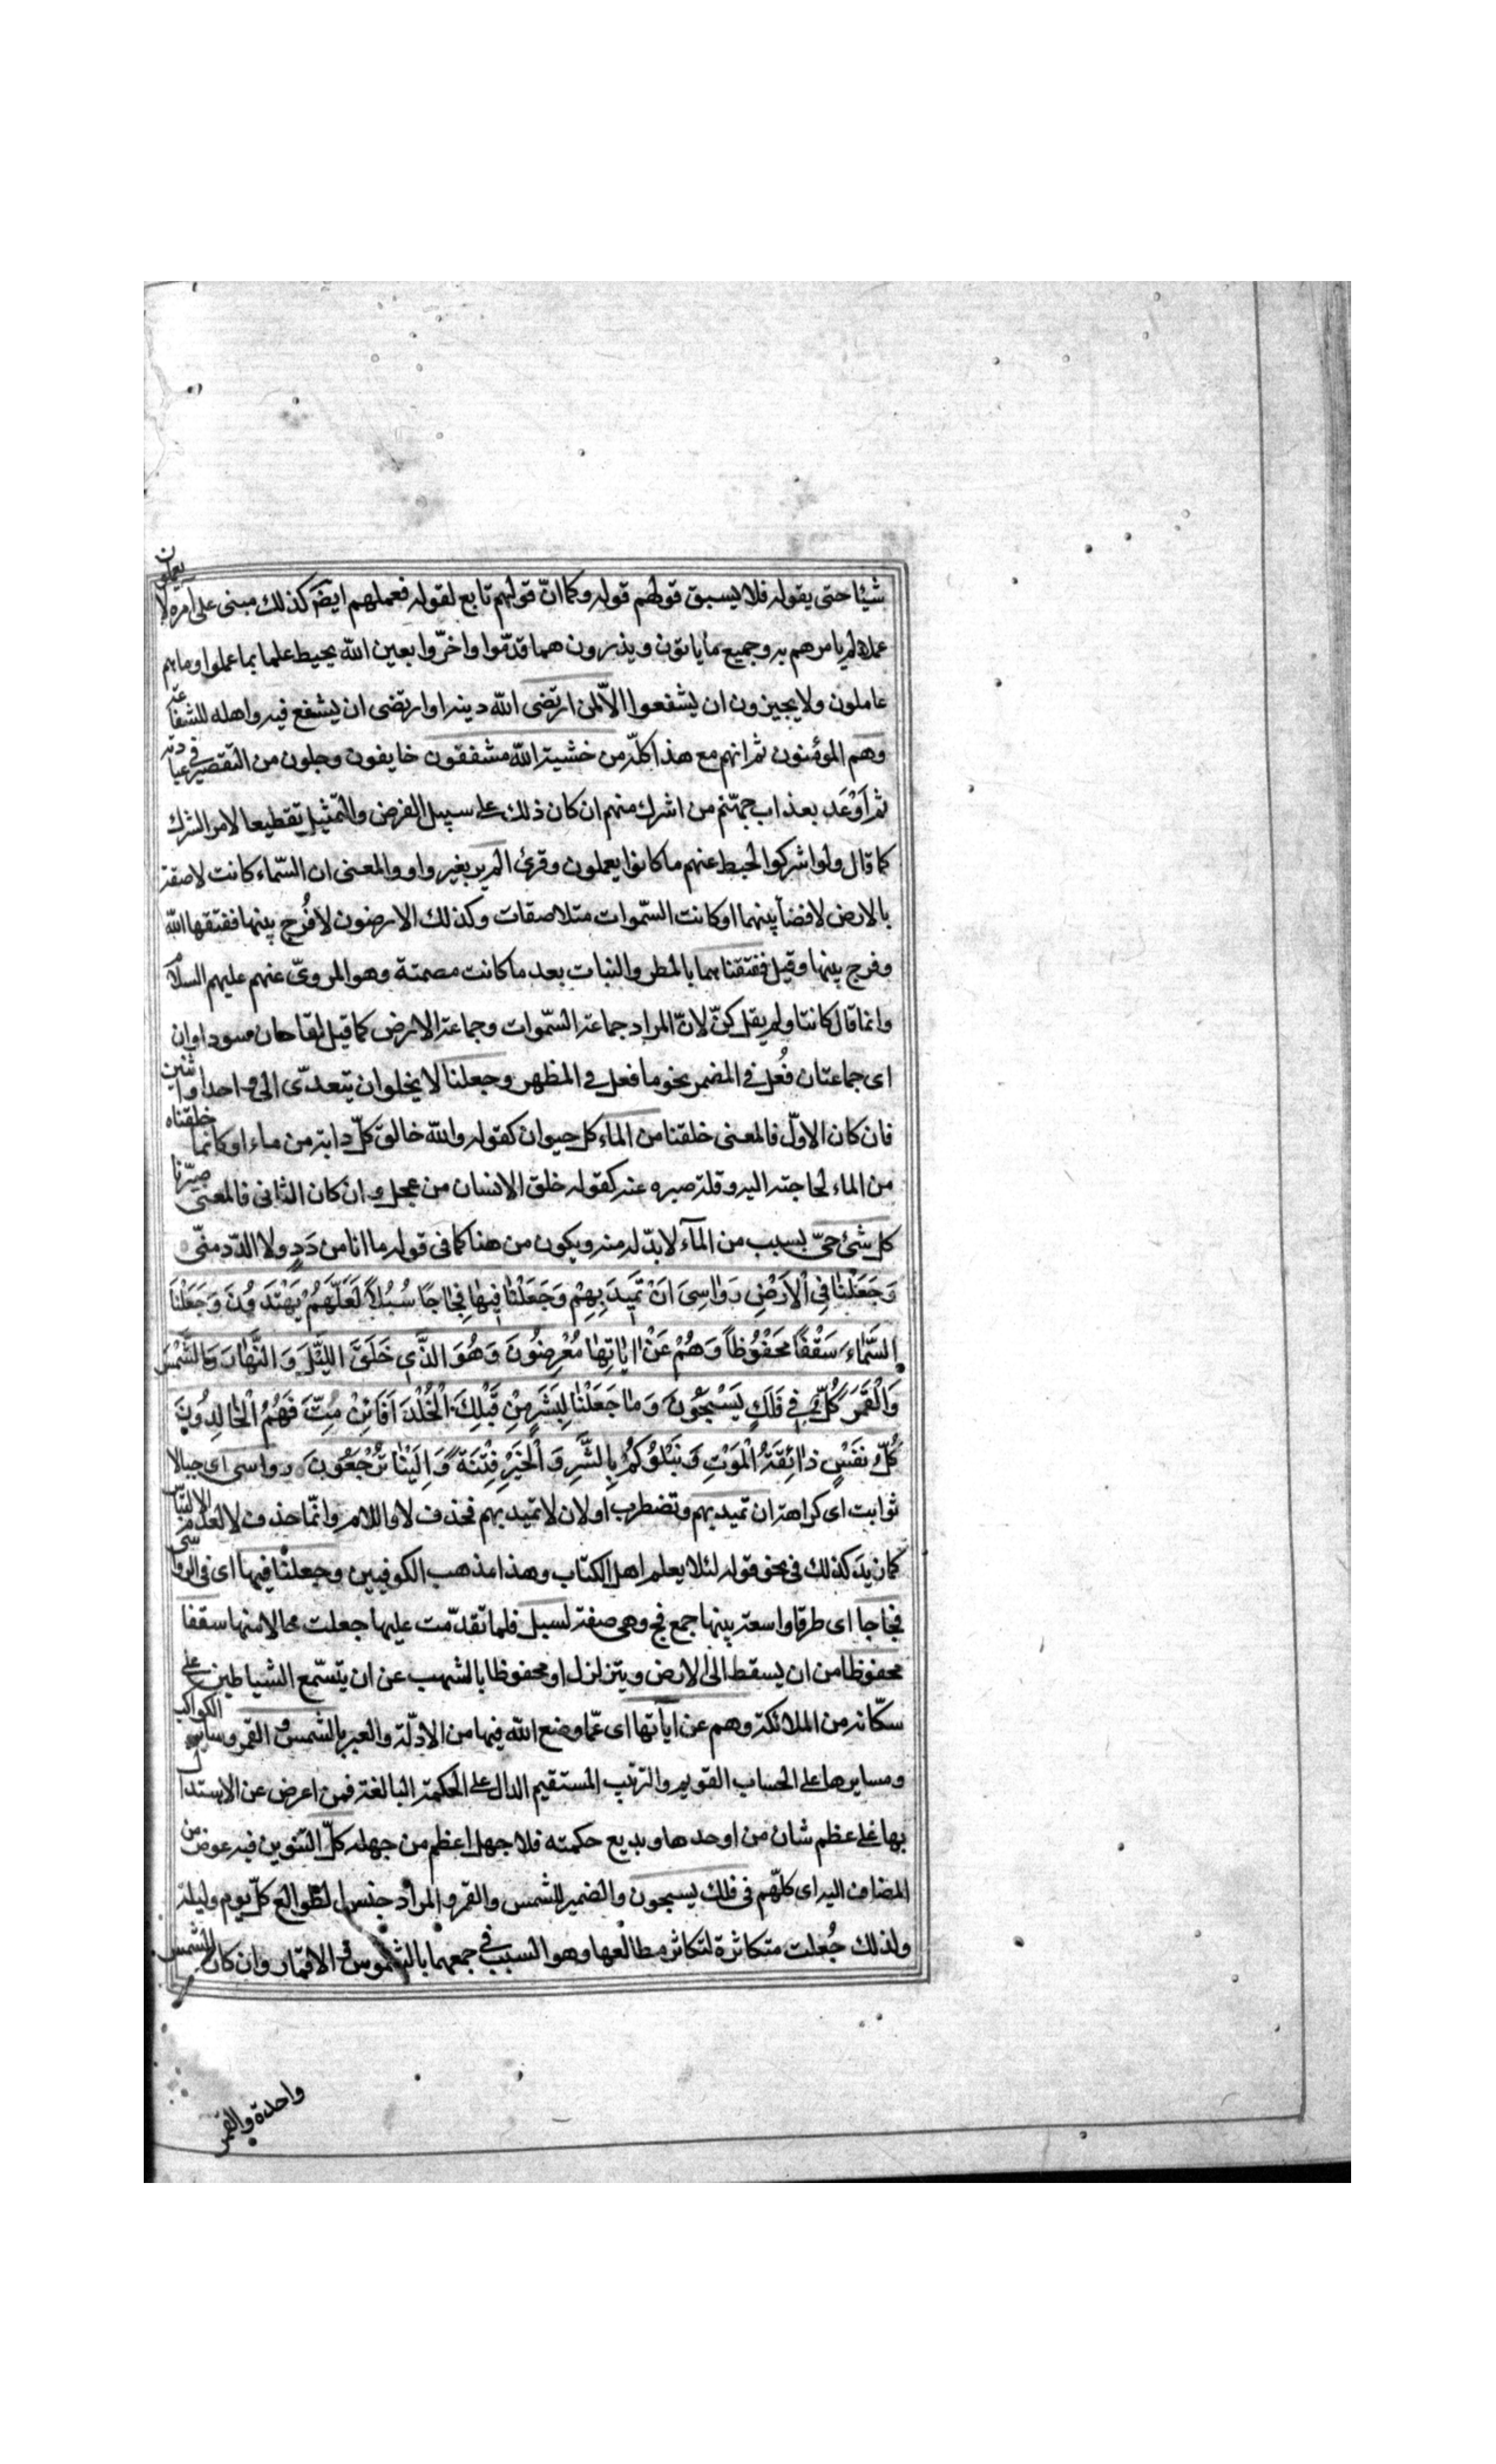 شيئا حتى يقوله فلا يسبق قولهم قوله وكما انّ قولهم تابع لقوله فعملهم ايضَ كذلك مبنى على امره لا يعملون
عملا لم يامرهم به وجميع ما ياتون ويذرون مما قدّموا واخّروا بعين الله يحيط علما بما عملوا وما هم
عاملون ولا يجيزون ان يشفعوا الّا لمن ارتضى الله دينه او ارتضى ان يشفع فيه واهله للشفاعة
وهم المؤمنون ثم انهم مع هذا كلّه من خشية الله مشفقون خايفون وجلون من التقصير في عبادته
ثم اَوْعَد بعذاب جهنّم من اشرك منهم ان كان ذلك على سبيل الفرض والتمثيل تقطيعا لامر الشرك
كما قال ولو اشركوا لحبط عنهم ما كانوا يعملون وقرئ الم ير بغير واو والمعنى ان السّماء كانت لاصقة
بالارض لا فضاَ بينهما او كانت السّموات متلاصقات وكذلك الارضون لا فُرج بينها ففتقها الله
وفرج بينها وقيل ففتقناهما بالمطر والنبات بعد ما كانت مصمتة وهو المروىّ عنهم عليهم السلام
وانما قال كانتا ولم يقل كنّ لانّ المراد جماعة السّموات وجماعة الارض كما قيل لقاحان سوداوان
اى جماعتان فُعل فى المضمر نحو ما فعل فى المظهر وجعلنا لا يخلو ان يتعدّى الى واحد او اثنين
فان كان الاوّل فالمعنى خلقنا من الماء كل حيوان كقوله والله خالق كلّ دابة من ماء او كانما خلقناه
من الماء لحاجته اليه وقلة صبره عنه كقوله خلق الانسان من عجل وان كان الثانى فالمعنى صيّرنا
كل شئ حىّ بسبب من المآء لا بدّ له منه ويكون من هنا كما فى قوله ما انا من دَدٍ ولا الدّد منّى
وَجَعَلْنا فِى الْاَرْضِ رَواسِىَ اَنْ تَمِيدَ بِهِمْ وَجَعَلْنا فِيها فِجاجًا سُبُلًا لَعَلَّهُمْ يَهْتَدوُنَ وَجَعَلْنَا
السَّماءَ سَقْفًا مَحْفُوظًا وَهُمْ عَنْ اياتِها مُعْرِضُونَ وَهُوَ الَّذِى خَلَقَ اللَّيْلَ وَالنَّهارَ وَالشَّمْسَ
وَالْقَمَرَ كُلٌّ فِى فَلَكٍ يَسْبَحُونَ وَما جَعَلْنا لِبَشَرٍ مِنْ قَبْلِكَ الْخُلْدَ اَفَاِنْ مِتَّ فَهُمُ الْخالِدُونَ
كُلُّ نَفْسٍ ذائِقَةُ الْمَوْتِ وَنَبْلُوكُمْ بِالشَّرِّ وَالْخَيْرِ فِتْنَةً وَاِلَيْنا تُرْجَعُونَ رواسى اى جبالا
ثوابت اى كراهة ان تميد بهم وتضطرب او لان لا تميد بهم فحذف لا واللام وانّما حذف لا لعدم الالتباس
كما زيدَ كذلك فى نحو قوله لئلا يعلم اهل الكتاب وهذا مذهب الكوفيين وجعلنا فيها اى فى الرواسى
فجاجا اى طرقا واسعة بينها جمع فج وهى صفة لسبل فلما تقدّمت عليها جعلت حالا منها سقفا
محفوظا من ان يسقط الى الارض ويتزلزل او محفوظا بالشهب عن ان يتسّمع الشياطين على
سكّانه من الملائكة وهم عن اياتها اى عمّا وضع الله فيها من الادلّة والعبر بالشمس والقمر وساير الكواكب
ومسايرها على الحساب القويم والترتيب المستقيم الدال على الحكمة البالغة فمن اعرض عن الاستدلال
بها على عظم شان من اوجدها وبديع حكمته فلا جهل اعظم من جهله كلّ التنوين فيه عوض من
المضاف اليه اى كلّهم فى فلك يسبحون والضمير للشمس والقمر والمراد جنس الطوالع كلّ يوم وليلة
ولذلك جُعلت متكاثرة لتكاثر مطالعها وهو السبب في جمعهما بالشموس والاقمار وان كان الشمس
واحدة والقمر